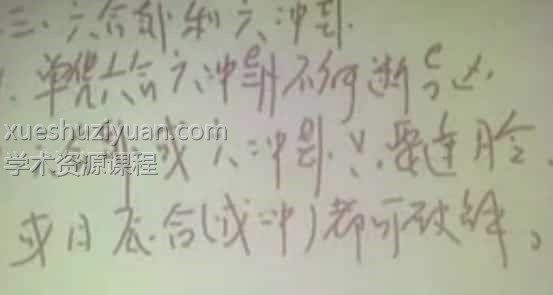 三、六合卦和六冲卦.
单凭六合六冲卦不何断
xueshuziyuan.com
学术资源课程
六合卦或六冲卦.只要逢月令
或日辰合(或冲)都可破解。